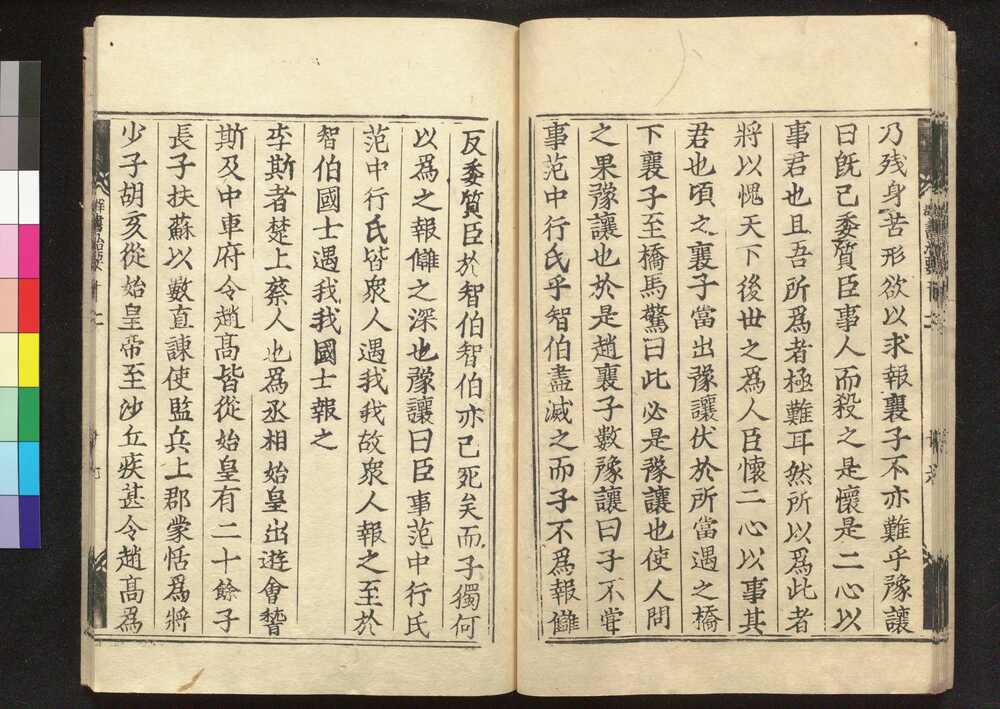 乃残身苦形欲以求報襄子不亦難乎豫讓
曰既已委質臣事人而殺之是懷是二心以
事君也且吾所爲者極難耳然所以爲此者
將以愧天下後世之爲人臣懷二心以事其
君也頃之襄子當出豫讓伏於所當過之橋
下襄子至橋馬驚曰此必是豫讓也使人問
之果豫讓也於是趙襄子數豫讓曰子不嘗
事范中行氏乎智伯盡滅之而子不爲報讎
反委質臣於智伯智伯亦已死矣而子獨何
以爲之報讎之深也豫讓曰臣事范中行氏
范中行氏皆衆人遇我我故衆人報之至於
智伯國士遇我我國士報之
李斯者楚上蔡人也爲丞相始皇出遊會稽
斯及中車府令趙髙皆從始皇有二十餘子
長子扶蘇以數直諫使監兵上郡蒙恬爲將
少子胡亥從始皇帝至沙丘疾甚令趙髙爲
群書治要